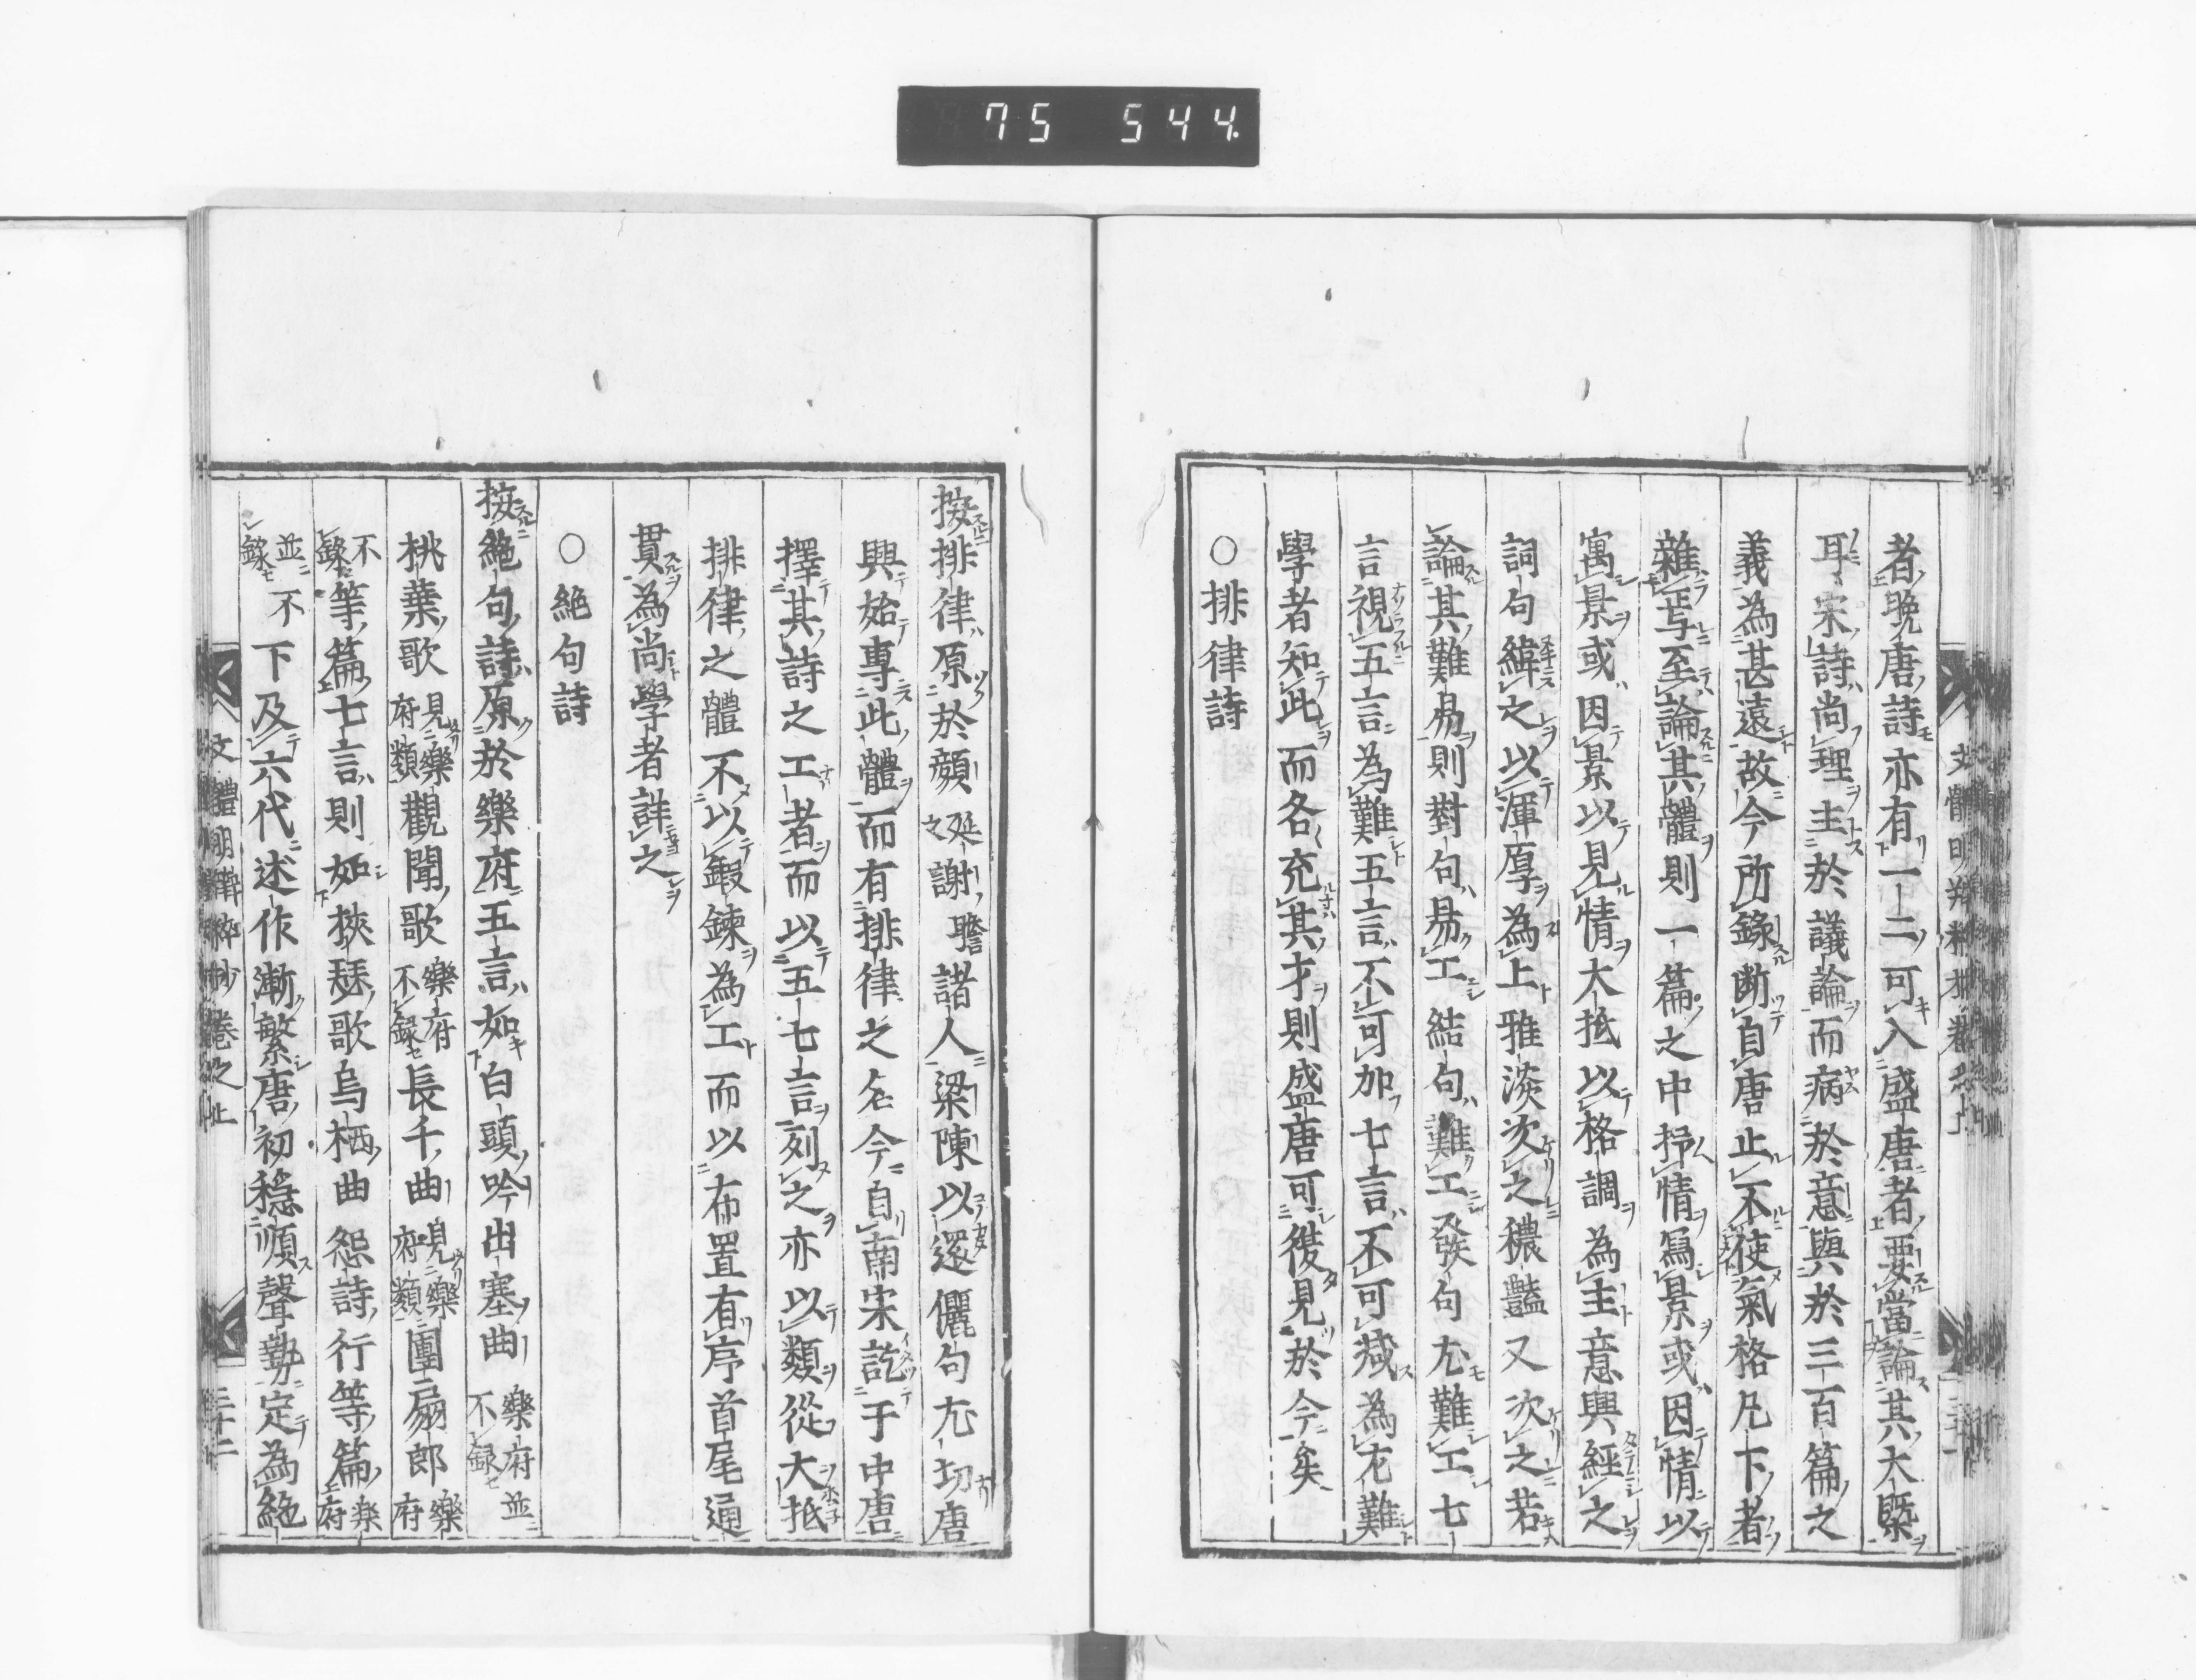 75 544
者晚唐詩亦有一二可入盛唐者要當論其大槩
耳宋詩尚理主於議論而病於意與於三百篇之
義為甚遠故今所錄断自唐止不使氣格凡下者
雜焉至論其體則一篇之中抒情寫景或因情以
寓景或因景以見情大抵以格調為主意興經之
詞句緯之以渾厚為上雅淡次之穠豔又次之若
論其難易則對句易工結句難工發句尤難工七
言視五言為難五言不可加七言不可减為尤難
學者知此而各充其才則盛唐可復見於今矣
○排律詩
按排律原於顏延之謝瞻諸人梁陳以還儷句尤切唐
興始專此體而有排律之名今自南宋訖于中唐
擇其詩之工者而以五七言列之亦以類從大抵
排律之體不以鍛鍊為工而以布置有序首尾通
貫為尚學者詳之
○絶句詩
按絶句詩原於樂府五言如白頭吟出塞曲樂府並不録
桃葉歌見樂府類觀聞歌樂府不録長干曲見樂府類團扇郎樂府
不錄等篇七言則如挾瑟歌烏栖曲怨詩行等篇楽府
並不錄下及六代述作漸繁唐初穏順聲勢定為絶
文體明辯粹抄卷之上
三十二